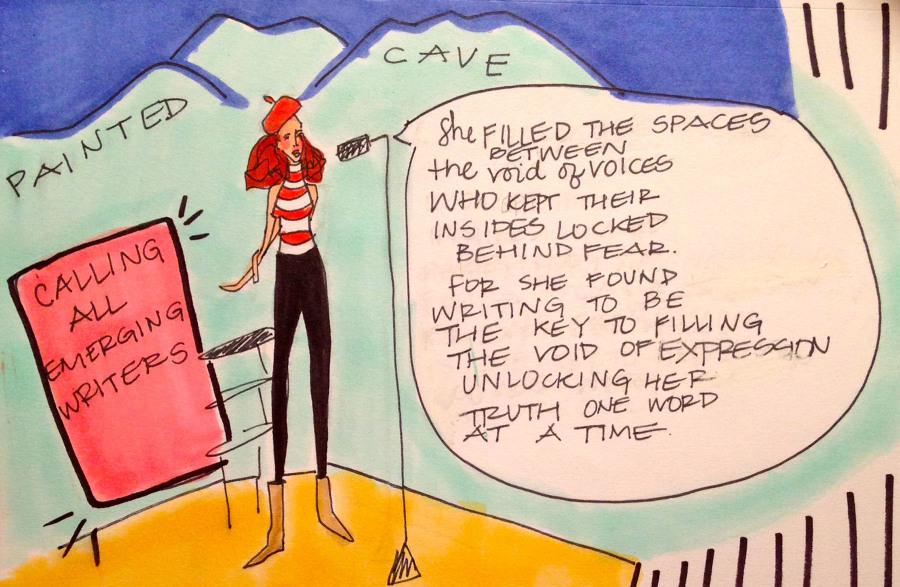 PAINTED CAVE
CALLING
ALL
EMERGING
WRITERS
She FILLED THE SPACES
BETWEEN
the void of VOICES
WHO KEPT THEIR
INSIDES LOCKED
BEHIND FEAR.
FOR SHE FOUND
WRITING TO BE
THE KEY TO FILLING
THE VOID OF EXPRESSION
UNLOCKING HER
TRUTH ONE WORD
AT A TIME.